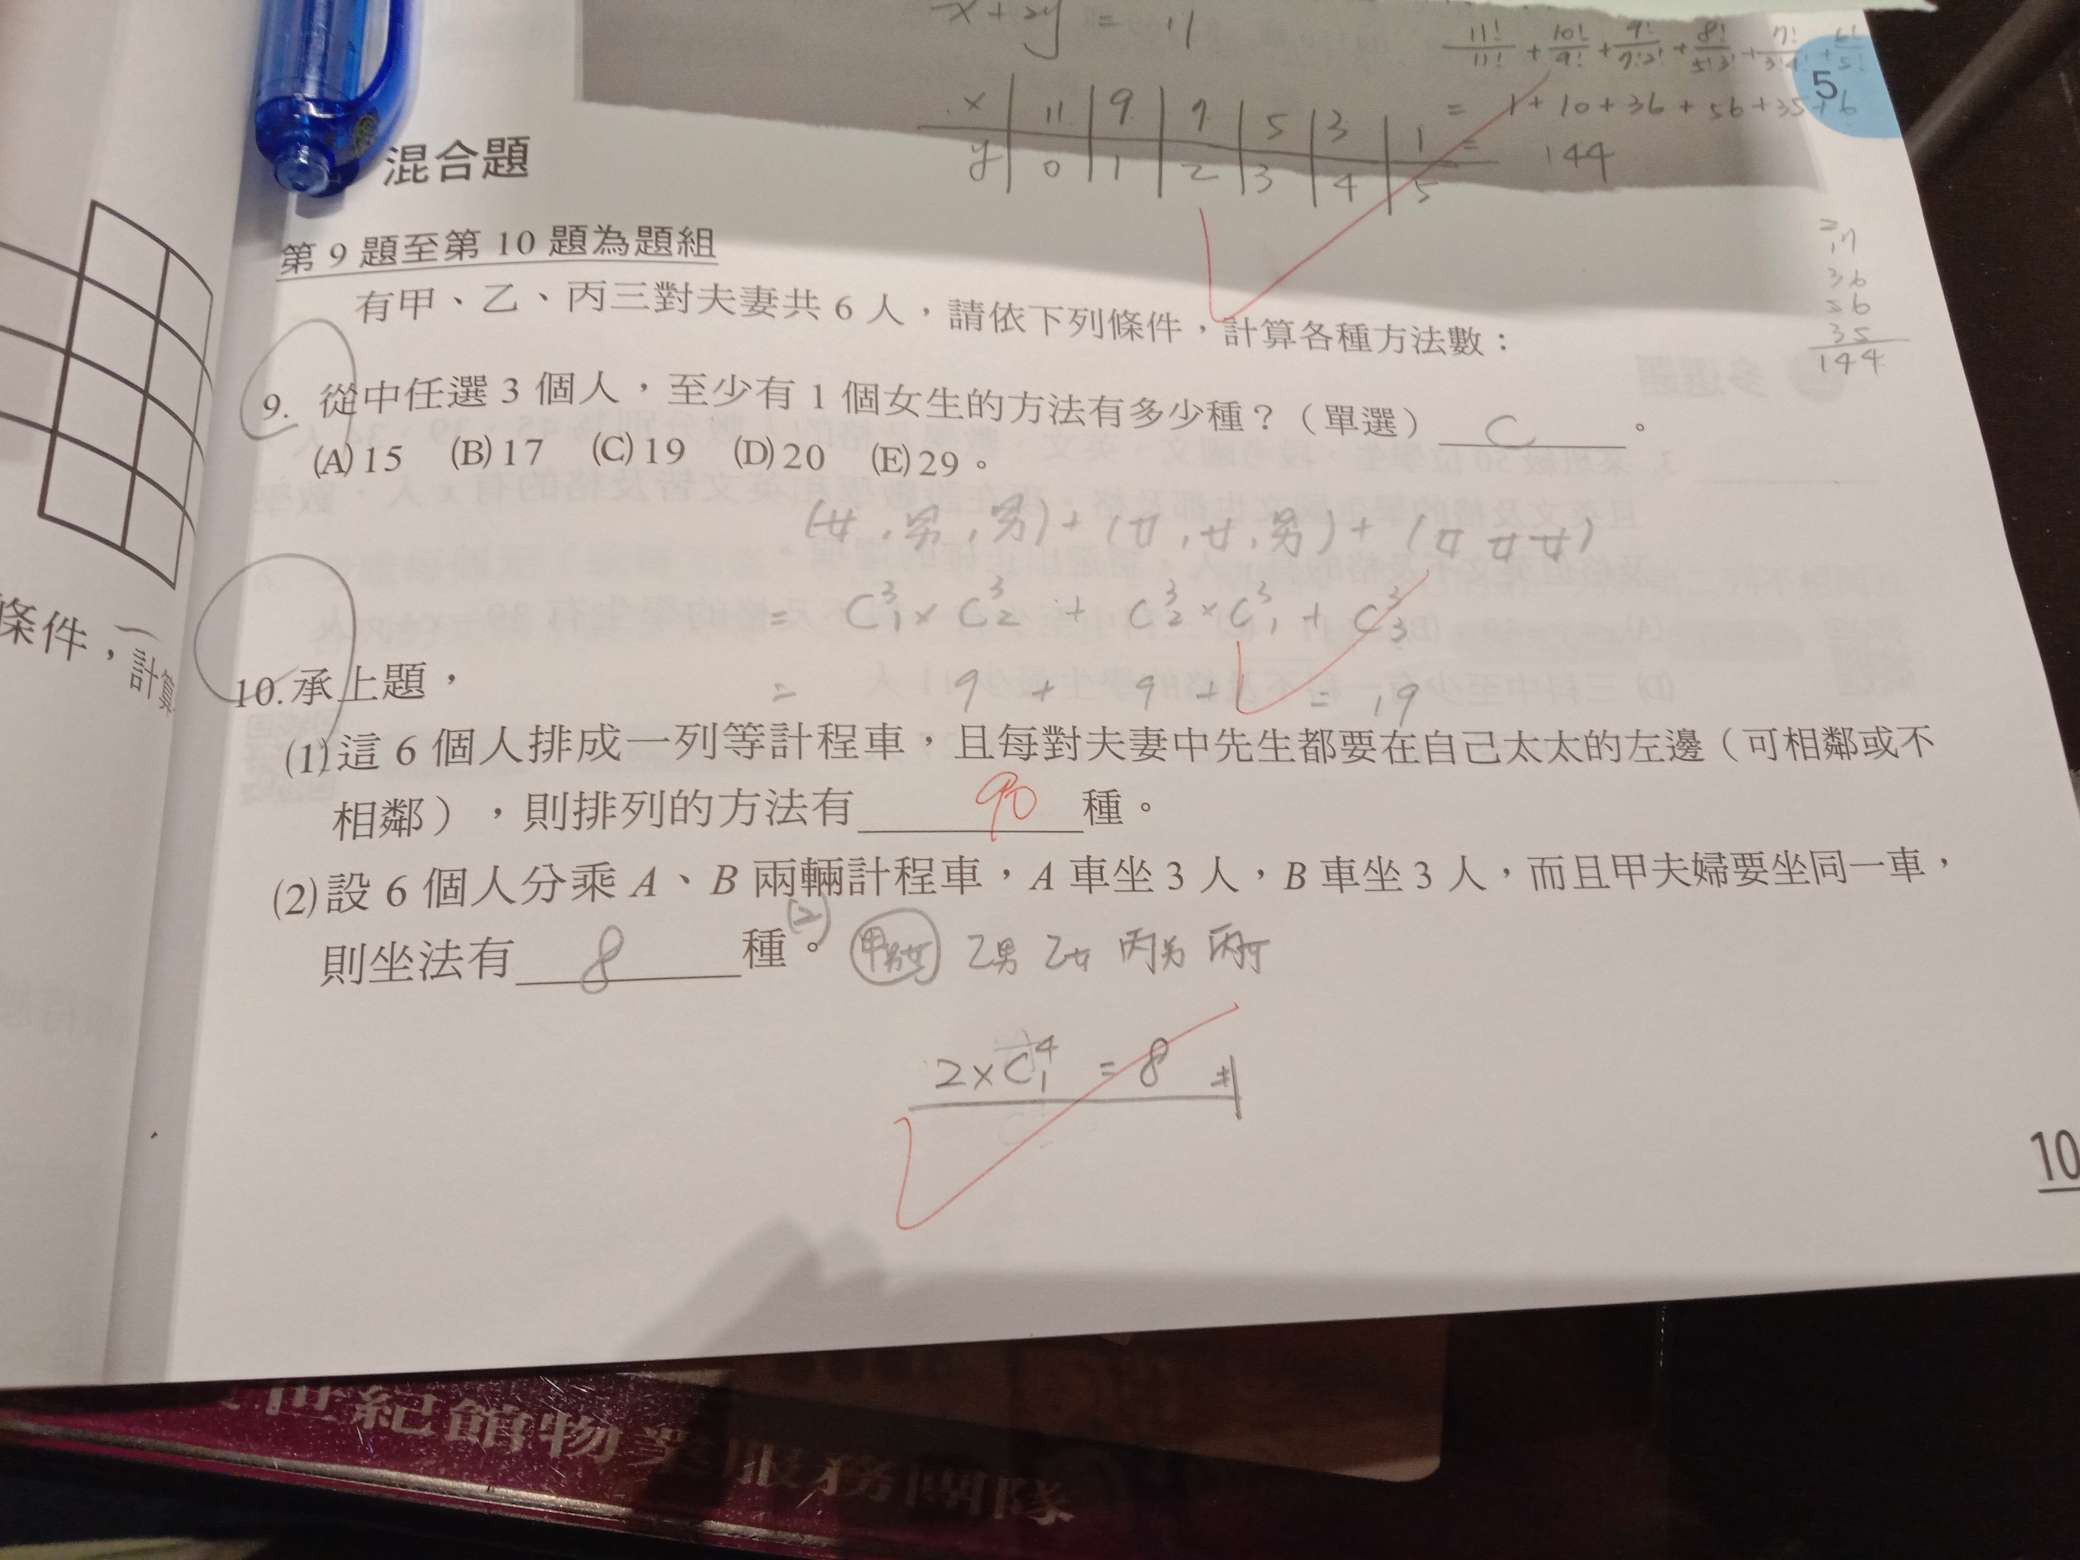 x+2y = 11
x 11 9 7 5 3 1
y 0 1 2 3 4 5
11!/11! + 10!/9! + 9!/7!2! + 8!/5!3! + 7!/3!4! + 6!/5!
= 1+10+36+56+35+6
= 144
5
17
36
56
35
144
混合題
第 9 題至第 10 題為題組
有甲、乙、丙三對夫妻共 6 人，請依下列條件，計算各種方法數：
9. 從中任選 3 個人，至少有 1 個女生的方法有多少種？（單選） C 。
(A)15 (B)17 (C)19 (D)20 (E)29。
(女,男,男)+(女,女,男)+(女女女)
= C³₁×C³₂ + C³₂×C³₁ + C³₃
= 9 + 9 + 1 = 19
10.承上題，
(1)這 6 個人排成一列等計程車，且每對夫妻中先生都要在自己太太的左邊（可相鄰或不
相鄰），則排列的方法有 90 種。
(2)設 6 個人分乘 A、B 兩輛計程車，A 車坐 3 人，B 車坐 3 人，而且甲夫婦要坐同一車，
則坐法有 8 種。
(2) 甲男女 乙男 乙女 丙男 丙女
2×C⁴₁ = 8
10
條件，計算
世紀館物業服務團隊